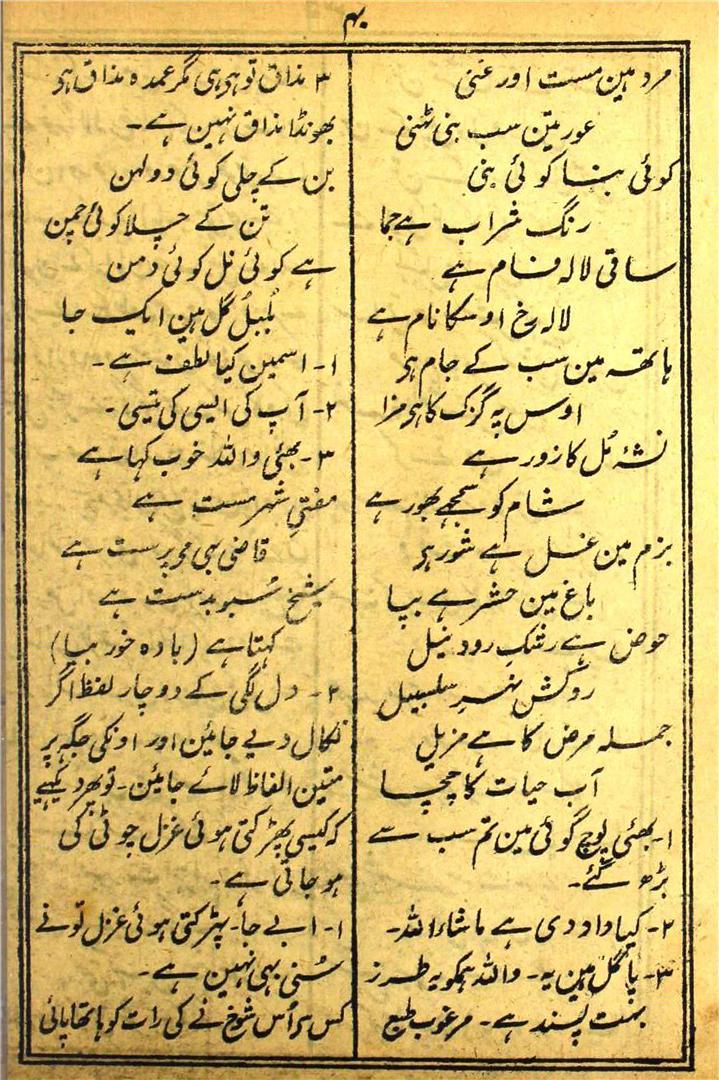 ۴۰
مرد ہین مست اور غنی
عورتین سب بنی ٹھنی
کوئی بنا کوئی بنی
رنگ شراب ہے جما
ساقی لالہ فام ہے
لالہ رخ اوسکا نام ہے
ہاتھہ مین سب کے جام ہی
اوس پہ گزک کا ہی مزا
نشۂ مُل کا زور ہے
شام کو سمجھے بھور ہے
بزم مین غسل ہے شور ہی
باغ مین حشر ہے بپا
حوض ہے رشکِ رود نیل
روکش نہرِ سلسبیل
جملہ مرض کا ہے مزیل
آب حیات کا چچا
۱۔ بھئی پوچ گوئی مین تم سب سے
بڑھ گئے۔
۲۔ کیا داد دی ہے ماشاءاللہ۔
۳۔ پاگل ہین یہ۔ واللہ ہمکو یہ طرز
بہت پسند ہے۔ مرغوب طبع
۳ مذاق تو ہی ہی مگر عمدہ مذاق ہی
بھونڈا مذاق نہین ہے۔
بن کے چلی کوئی دولہن
تن کے چلا کوئی چمن
ہے کوئی نل کوئی دمن
بُلبل گل ہین ایک جا
۱۔ اسمین کیا لطف ہے۔
۲۔ آپ کی ایسی کی تیسی۔
۳۔ بھئی واللہ خوب کہا ہے
مفتیِ شہر مست ہے
قاضی بھی مے پرست ہے
شیخ سُبو بدست ہے
کہتا ہے (بادہ خور بیا)
۲۔ دل لگی کے دوچار لفظ اگر
نکال دیے جائین اور اونکی جگہ پر
متین الفاظ لائے جائین۔ تو پھر دیکھیے
کہ کیسی پھڑکتی ہوئی غزل چوٹی کی
ہو جاتی ہے۔
۱۔ ابے جا۔ پھڑکتی ہوئی غزل تونے
سُنی بھی نہین ہے۔
کس سر اُس شوخ نے کی رات کو ہاتھا پائی